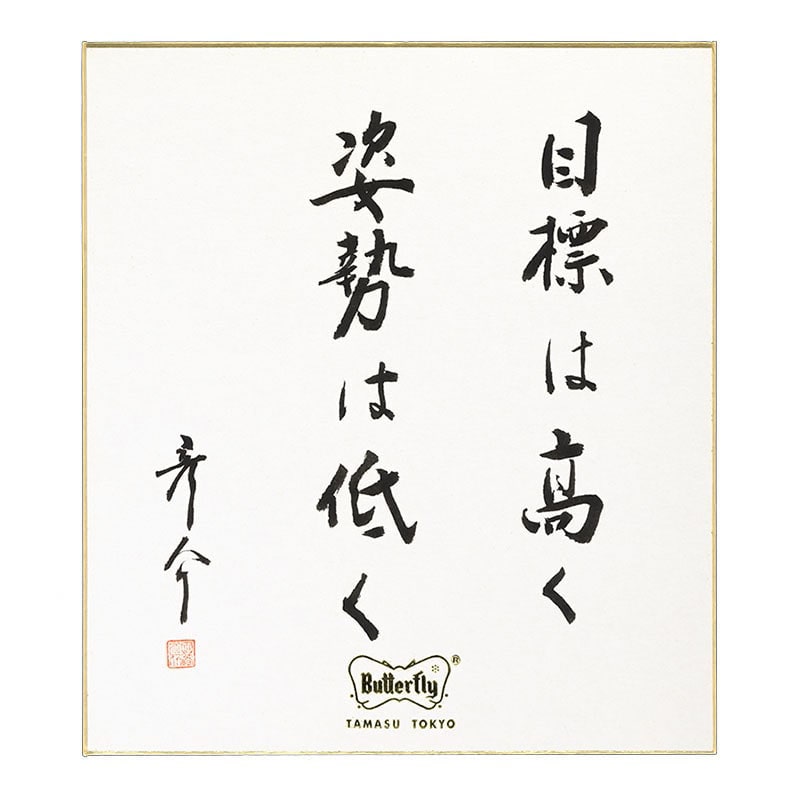 目標は高く
姿勢は低く
彦介
Butterfly®
TAMASU TOKYO